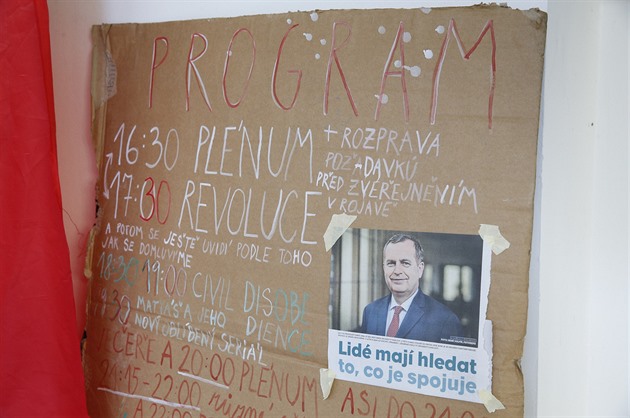 PROGRAM
16:30 PLÉNUM + ROZPRAVA
POŽADAVKŮ
PŘED ZVEŘEJNĚNÍM
V ROJAVĚ
17:30 REVOLUCE
A POTOM SE JEŠTĚ UVIDÍ PODLE TOHO
JAK SE DOMLUVÍME
19:00 CIVIL DISOBE
DIENCE
MATIÁŠ A JEHO
NOVĚ OBLÍBENÍ SERIÁL
A 20:00 PLÉNUM
21:15-22:00
Lidé mají hledat
to, co je spojuje